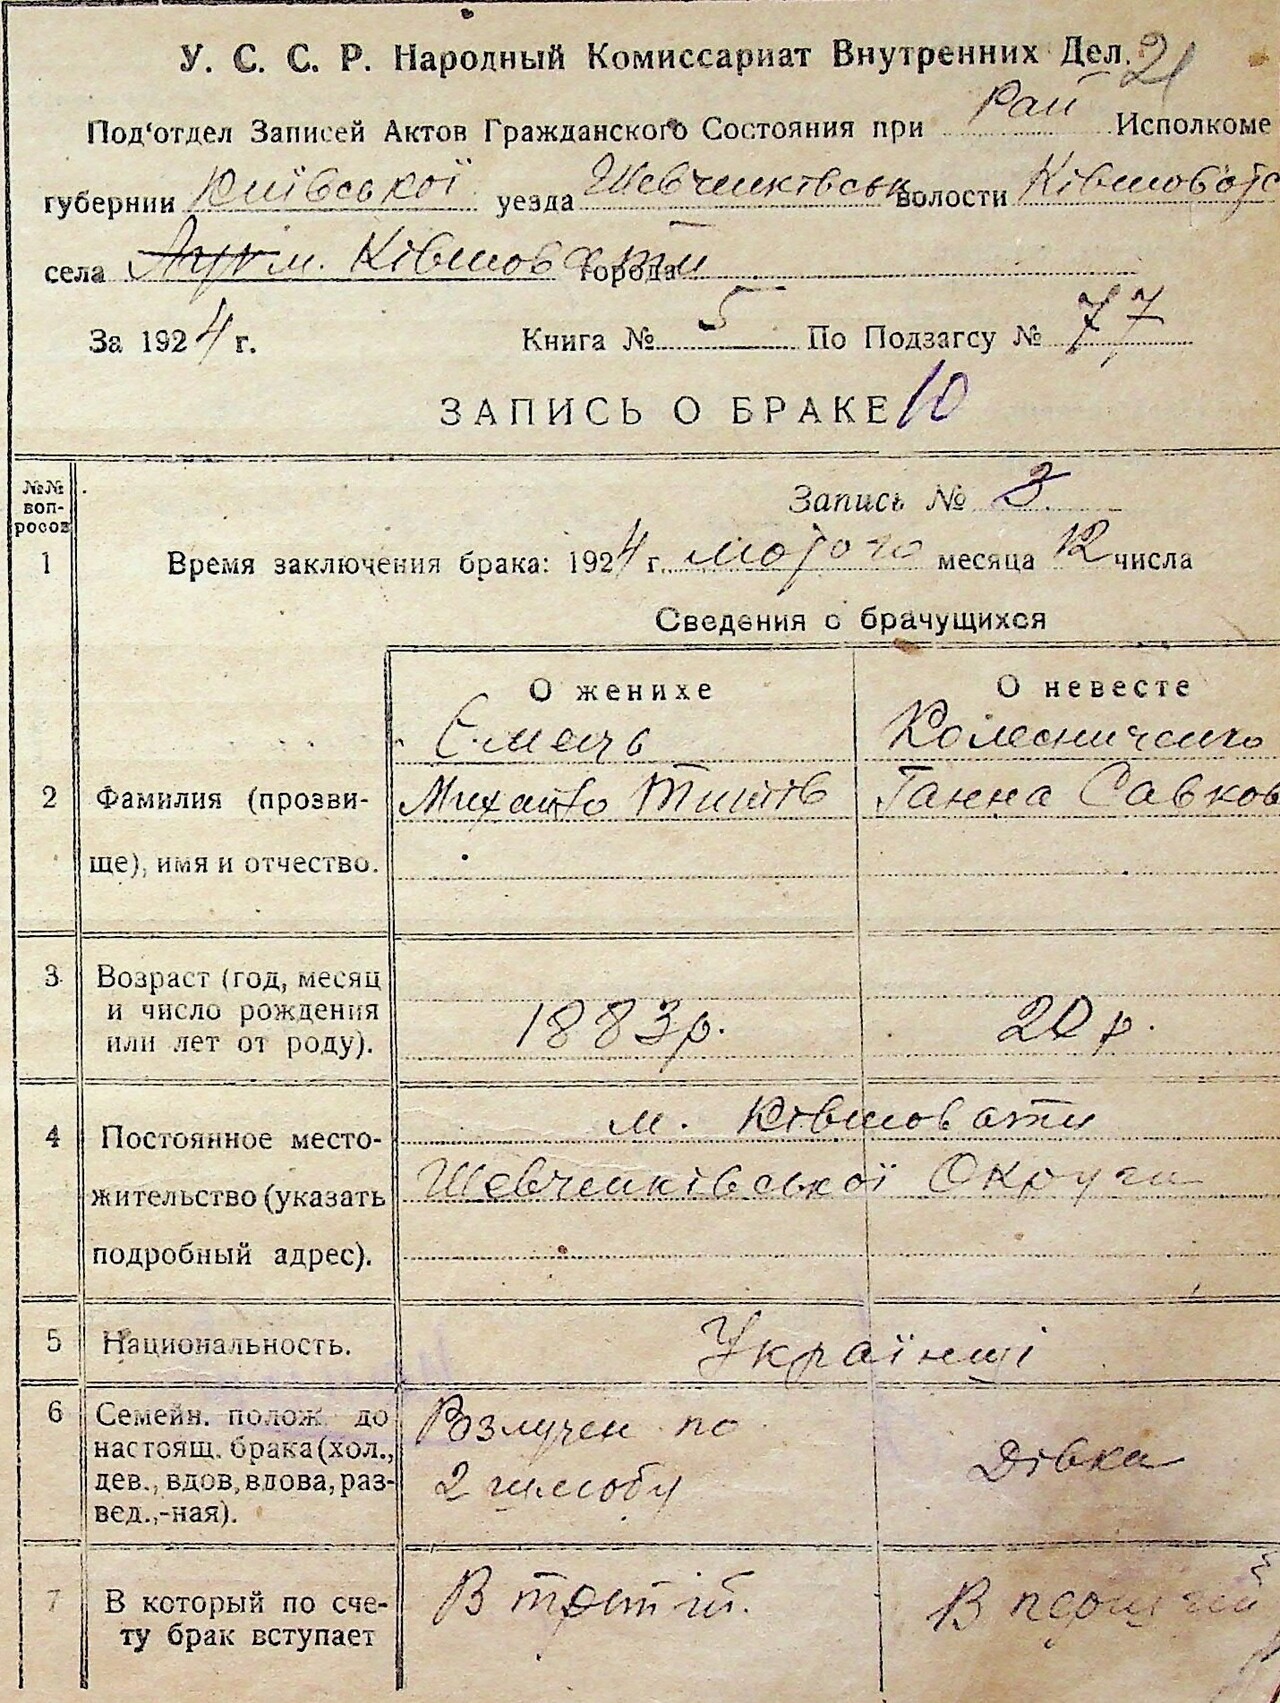 У. С. С. Р. Народный Комиссариат Внутренних Дел. 21
Под'отдел Записей Актов Гражданского Состояния при Рай Исполкоме
губернии Київської уезда Шевченківськ волости
села м. Ківшовати города
За 1924 г. Книга № 5 По Подзагсу № 77
ЗАПИСЬ О БРАКЕ 10
№№ вопросов
Запись № 3
1 Время заключения брака: 1924 г. лютого месяца 12 числа
Сведения о брачущихся
О женихе О невесте
Колесниченко
2 Фамилия (прозви- Михайло Титів Ганна Савков
ще), имя и отчество.
3 Возраст (год, месяц
и число рождения 1883 р. 20 р.
или лет от роду).
м. Ківшовати
4 Постоянное место-
жительство (указать Шевченківської Округи
подробный адрес).
5 Национальность. Українці
6 Семейн. полож. до Розлучен по
настоящ. брака (хол.,
дев., вдов, вдова, раз- 2 шлюбу Дівка
вед.,-ная).
7 В который по сче- В третій. В перший
ту брак вступает